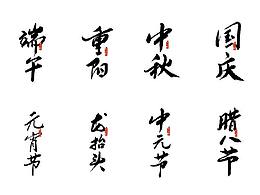 端午
重阳
中秋
国庆
元宵节
龙抬头
中元节
腊八节